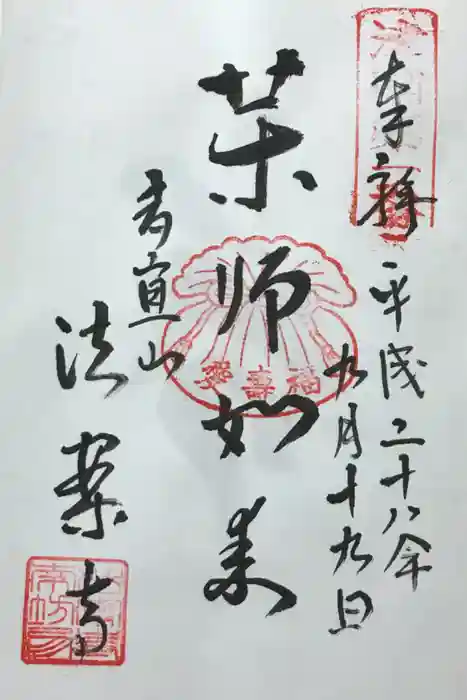 奉拝
平成二十八年
九月十九日
薬師如来
福壽
青宜山
法案寺